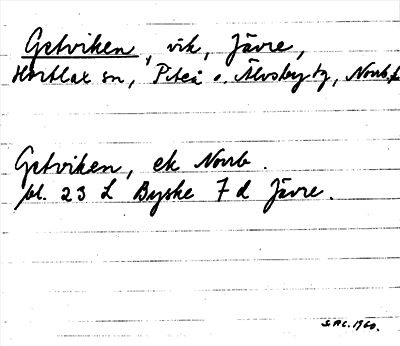 Getviken, vik, Jävre,
Hortlax sn, Piteå o. Älvsby tg, Norrb.
Getviken, ek Norrb.
bl. 23 L Byske 7 d Jävre.
1960.